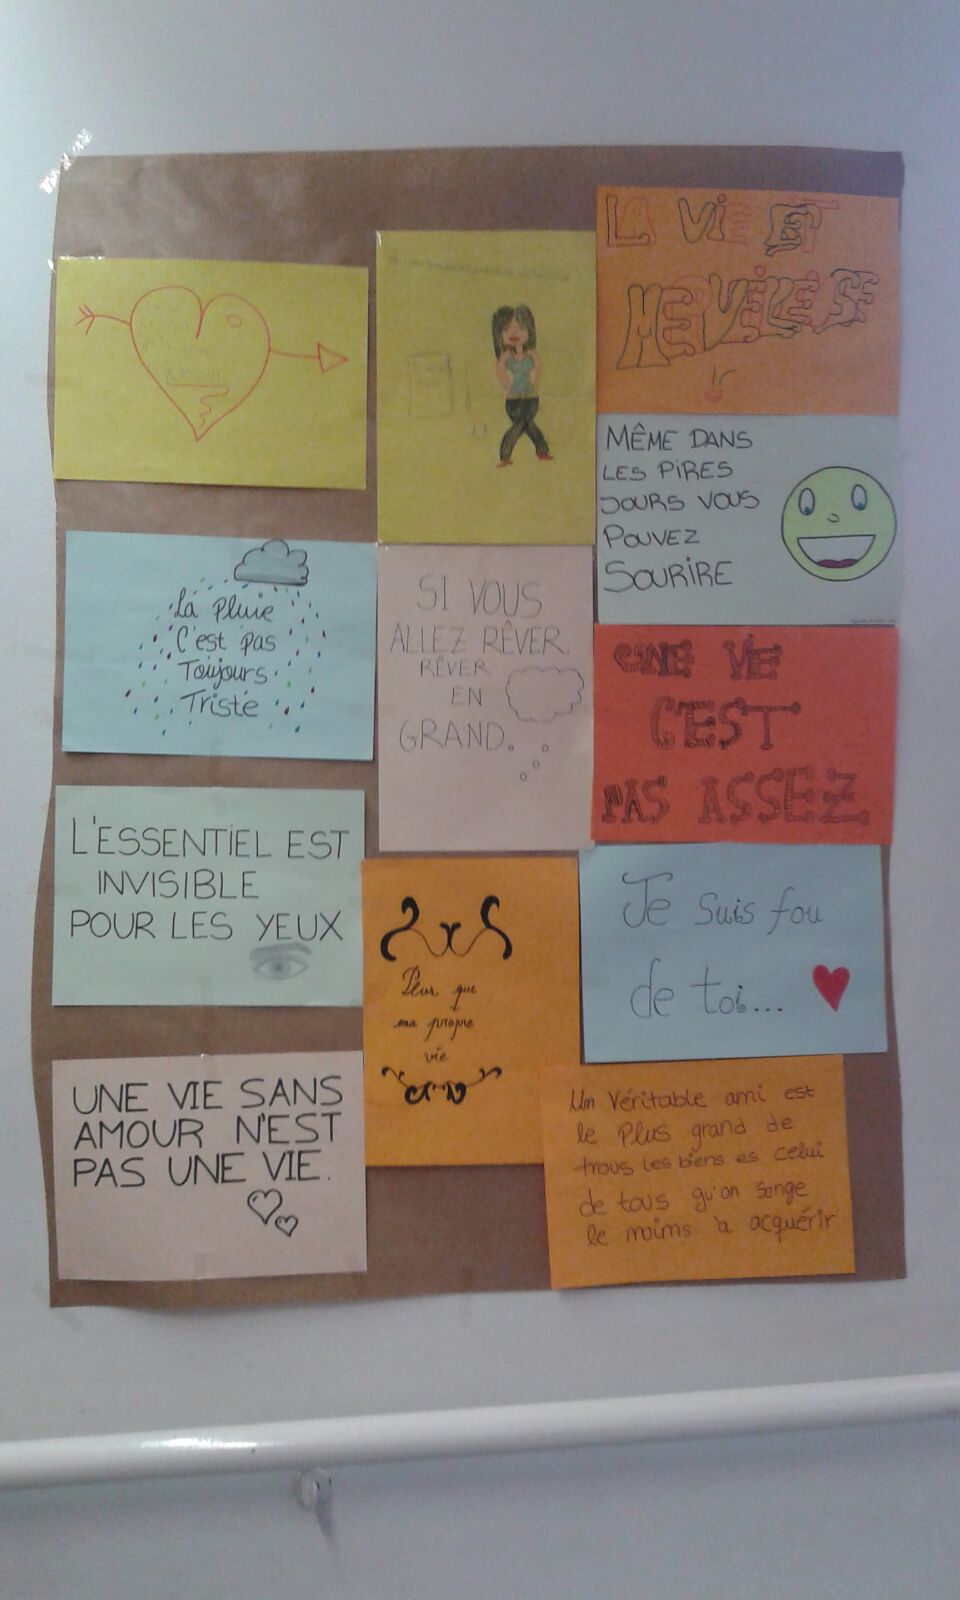 LA VIE ET
MERVEILEUSE
MÊME DANS
LES PIRES
JOURS VOUS
POUVEZ
SOURIRE
La Pluie
C'est pas
Toujours
Triste
SI VOUS
ALLEZ RÊVER.
RÊVER
EN
GRAND.
UNE VIE
C'EST
PAS ASSEZ
L'ESSENTIEL EST
INVISIBLE
POUR LES YEUX
Plus que
ma propre
vie
Je suis fou
de toi...
UNE VIE SANS
AMOUR N'EST
PAS UNE VIE.
Un véritable ami est
le plus grand de
trous les biens es celui
de tous qu'on songe
le moins à acquérir